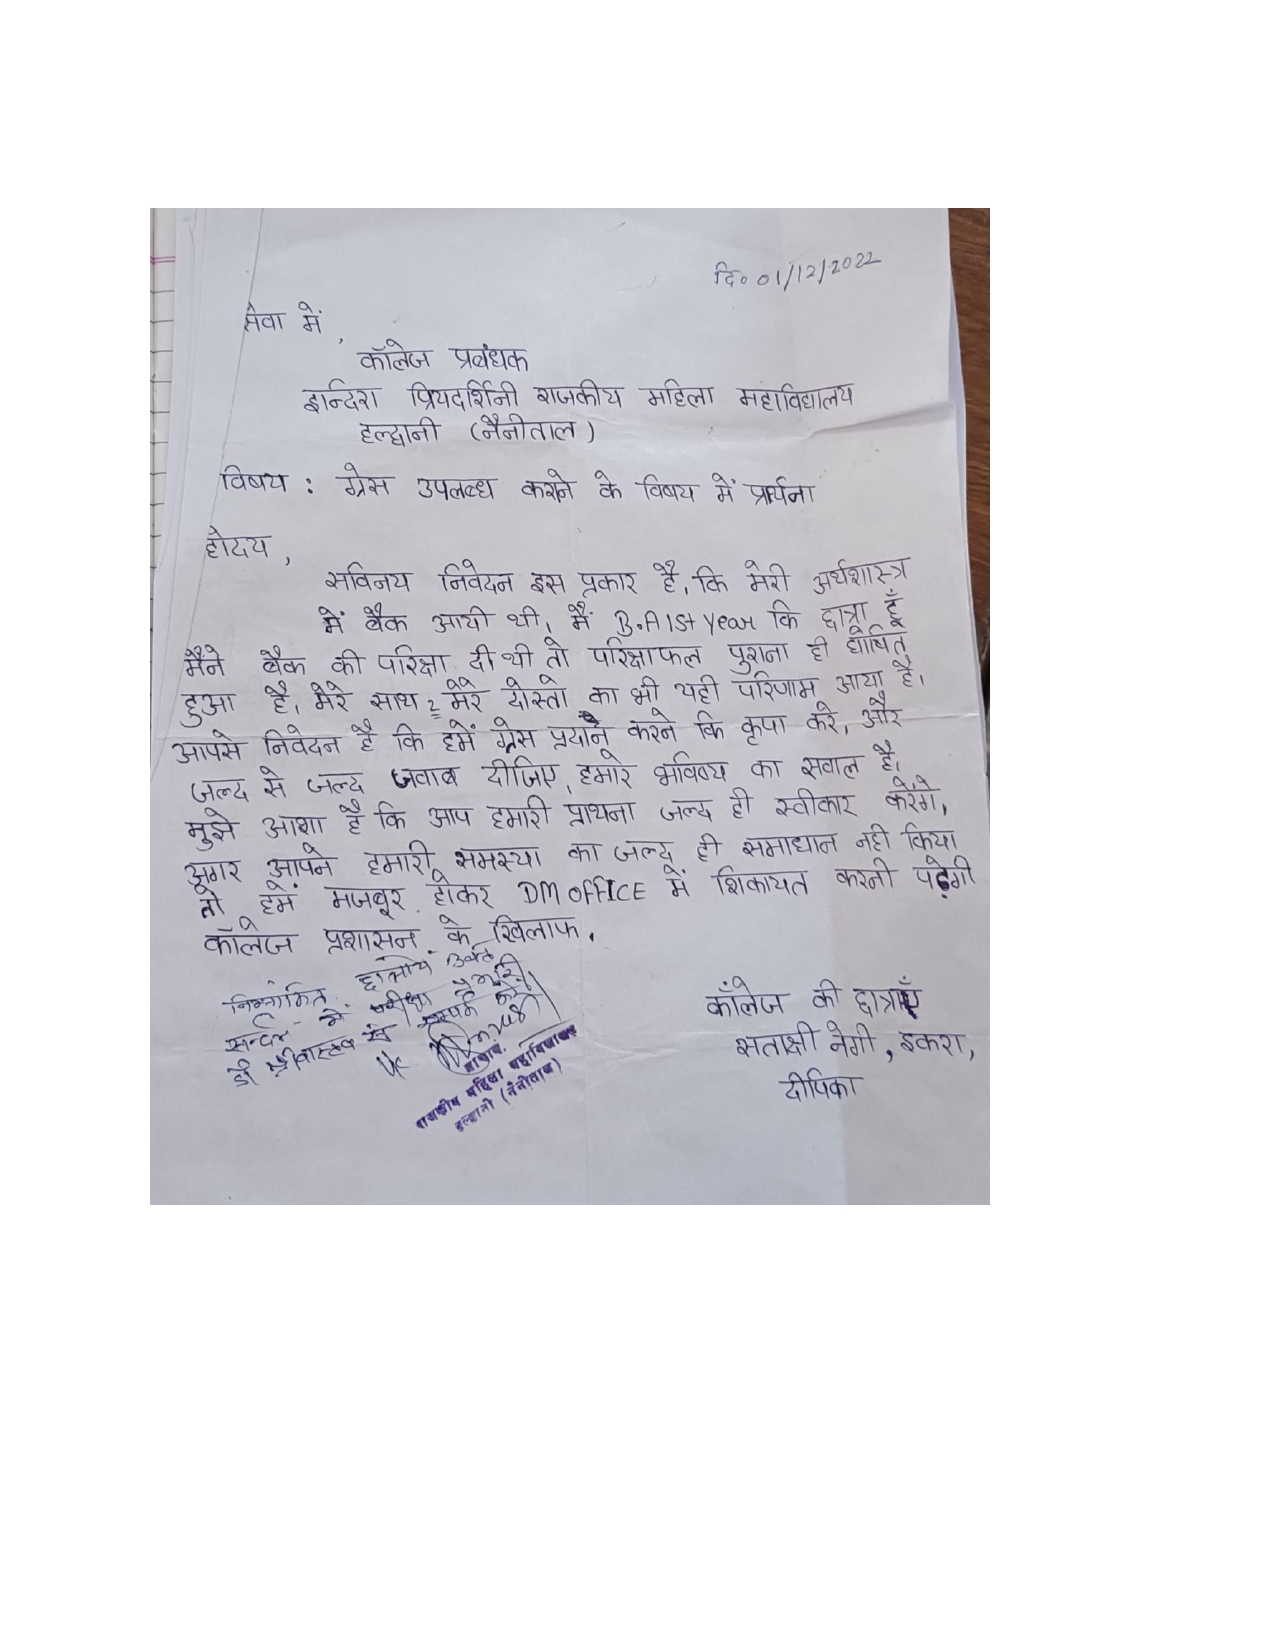 दि० 01/12/2022
सेवा में,
कॉलेज प्रबंधक
इन्दिरा प्रियदर्शिनी राजकीय महिला महाविद्यालय
हल्द्वानी (नैनीताल)
विषय : ग्रेस उपलब्ध कराने के विषय में प्रार्थना
होदय,
सविनय निवेदन इस प्रकार है, कि मेरी अर्थशास्त्र
में बैक आयी थी, मैं B.A 1st year कि छात्रा हूँ
मैंने बैक की परिक्षा दी थी तो परिक्षाफल पुराना ही घोषित
हुआ है, मेरे साथ 2 मेरे दोस्तो का भी यही परिणाम आया है,
आपसे निवेदन है कि हमें ग्रेस प्रदान करने कि कृपा करे, और
जल्द से जल्द जवाब दीजिए, हमारे भविष्य का सवाल है,
मुझे आशा है कि आप हमारी प्राथना जल्द ही स्वीकार करेंगे,
अगर आपने हमारी समस्या का जल्द ही समाधान नही किया
तो हमें मजबूर होकर DM OFFICE में शिकायत करनी पढ़ेगी
कॉलेज प्रशासन के खिलाफ,
छात्रायें उक्त
सन्दर्भ में परीक्षा प्रभारी
डॉ श्रीवास्तव से सम्पर्क करें
प्राचार्य
राजकीय महिला महाविद्यालय
हल्द्वानी (नैनीताल)
कॉलेज की छात्राएँ
सताक्षी नेगी, इकरा,
दीपिका